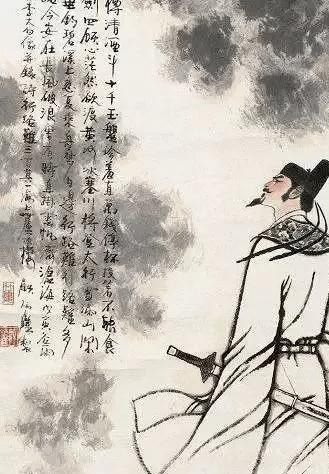 樽清酒斗十千玉盤珍羞直萬錢停杯投箸不能食
劍四顧心茫然欲渡黃河冰塞川將登太行雪滿山閑
垂釣碧溪上忽復乘舟夢日邊行路難行路難多
路今安在長風破浪會有時直掛雲帆濟滄海
太白像并錄詩行路難
顧炳鑫製